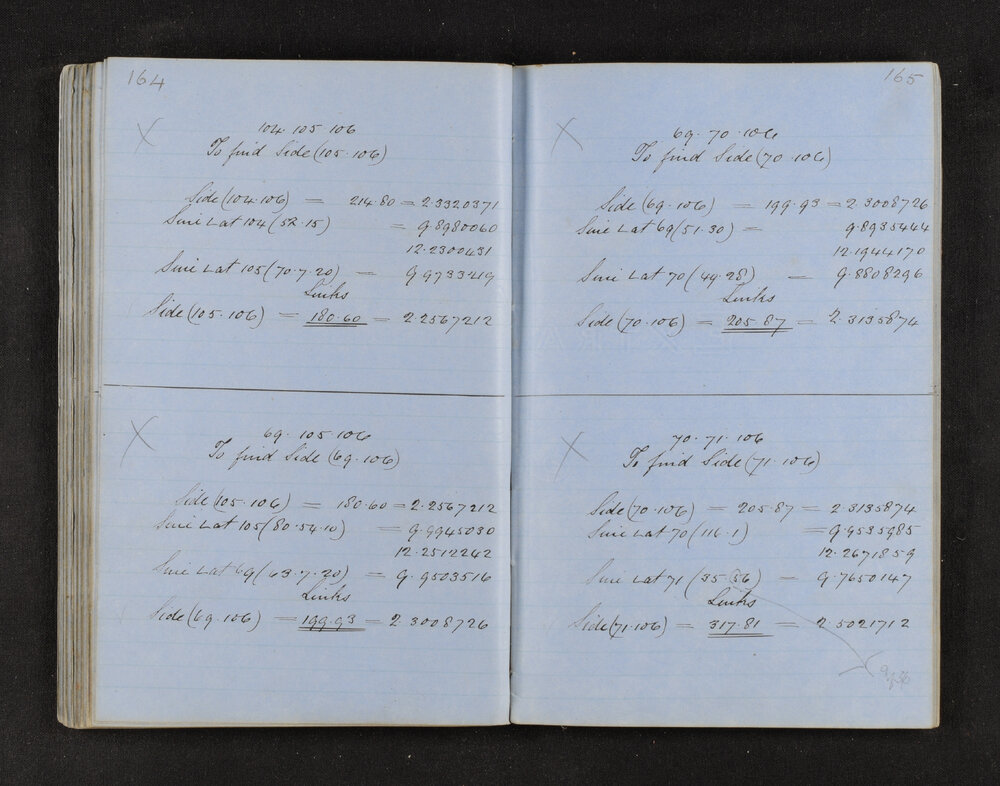 164
104. 105. 106
To find Side (105. 106)
Side (104. 106) = 214.80 = 2.3320371
Sine Lat 104 (52. 15) = 9.8980060
12.2300431
Sine Lat 105 (70. 7. 20) = 9.9733219
Links
Side (105. 106) = 180.60 = 2.2567212
69. 105. 106
To find Side (69. 106)
Side (105. 106) = 180.60 = 2.2567212
Sine Lat 105 (80. 54. 10) = 9.9945030
12.2512242
Sine Lat 69 (63. 7. 20) = 9.9503516
Links
Side (69. 106) = 199.93 = 2.3008726
165
69. 70. 106
To find Side (70. 106)
Side (69. 106) = 199.93 = 2.3008726
Sine Lat 69 (51. 30) = 9.8935444
12.1944170
Sine Lat 70 (49. 28) = 9.8808296
Links
Side (70. 106) = 205.87 = 2.3135874
70. 71. 106
To find Side (71. 106)
Side (70. 106) = 205.87 = 2.3135874
Sine Lat 70 (116. 1) = 9.9535985
12.2671859
Sine Lat 71 (35. 36) = 9.7650147
Links
Side (71. 106) = 317.81 = 2.5021712